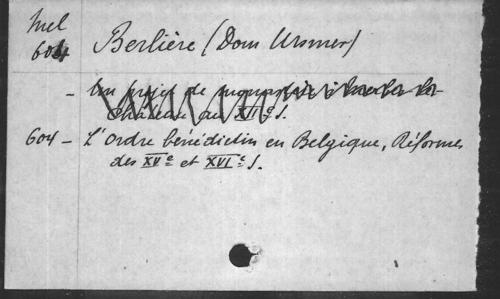 Mel
604 Berlière (Dom Ursmer)
- Un projet de
château au XVIe s.
604 - L'ordre bénédictin en Belgique, Réformes
des XVe et XVIe s.